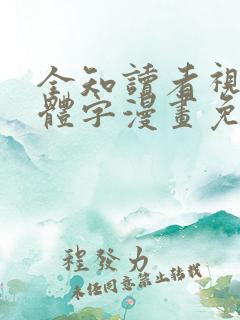 全知讀者視
體字漫畫免
程發力
未經同意禁止轉載